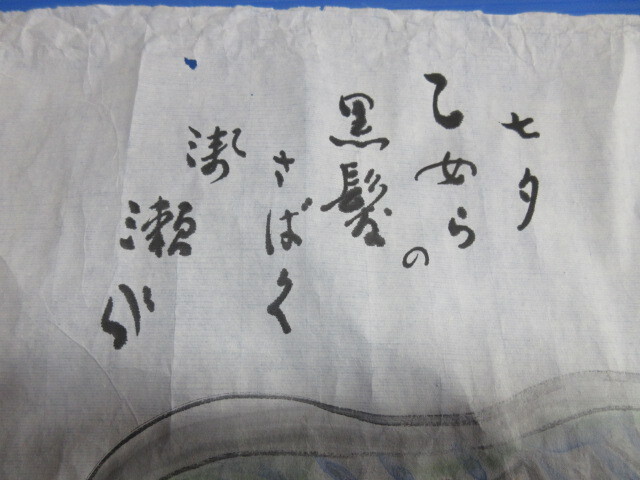 七夕
乙女らの
黒髪
さばく
瀬